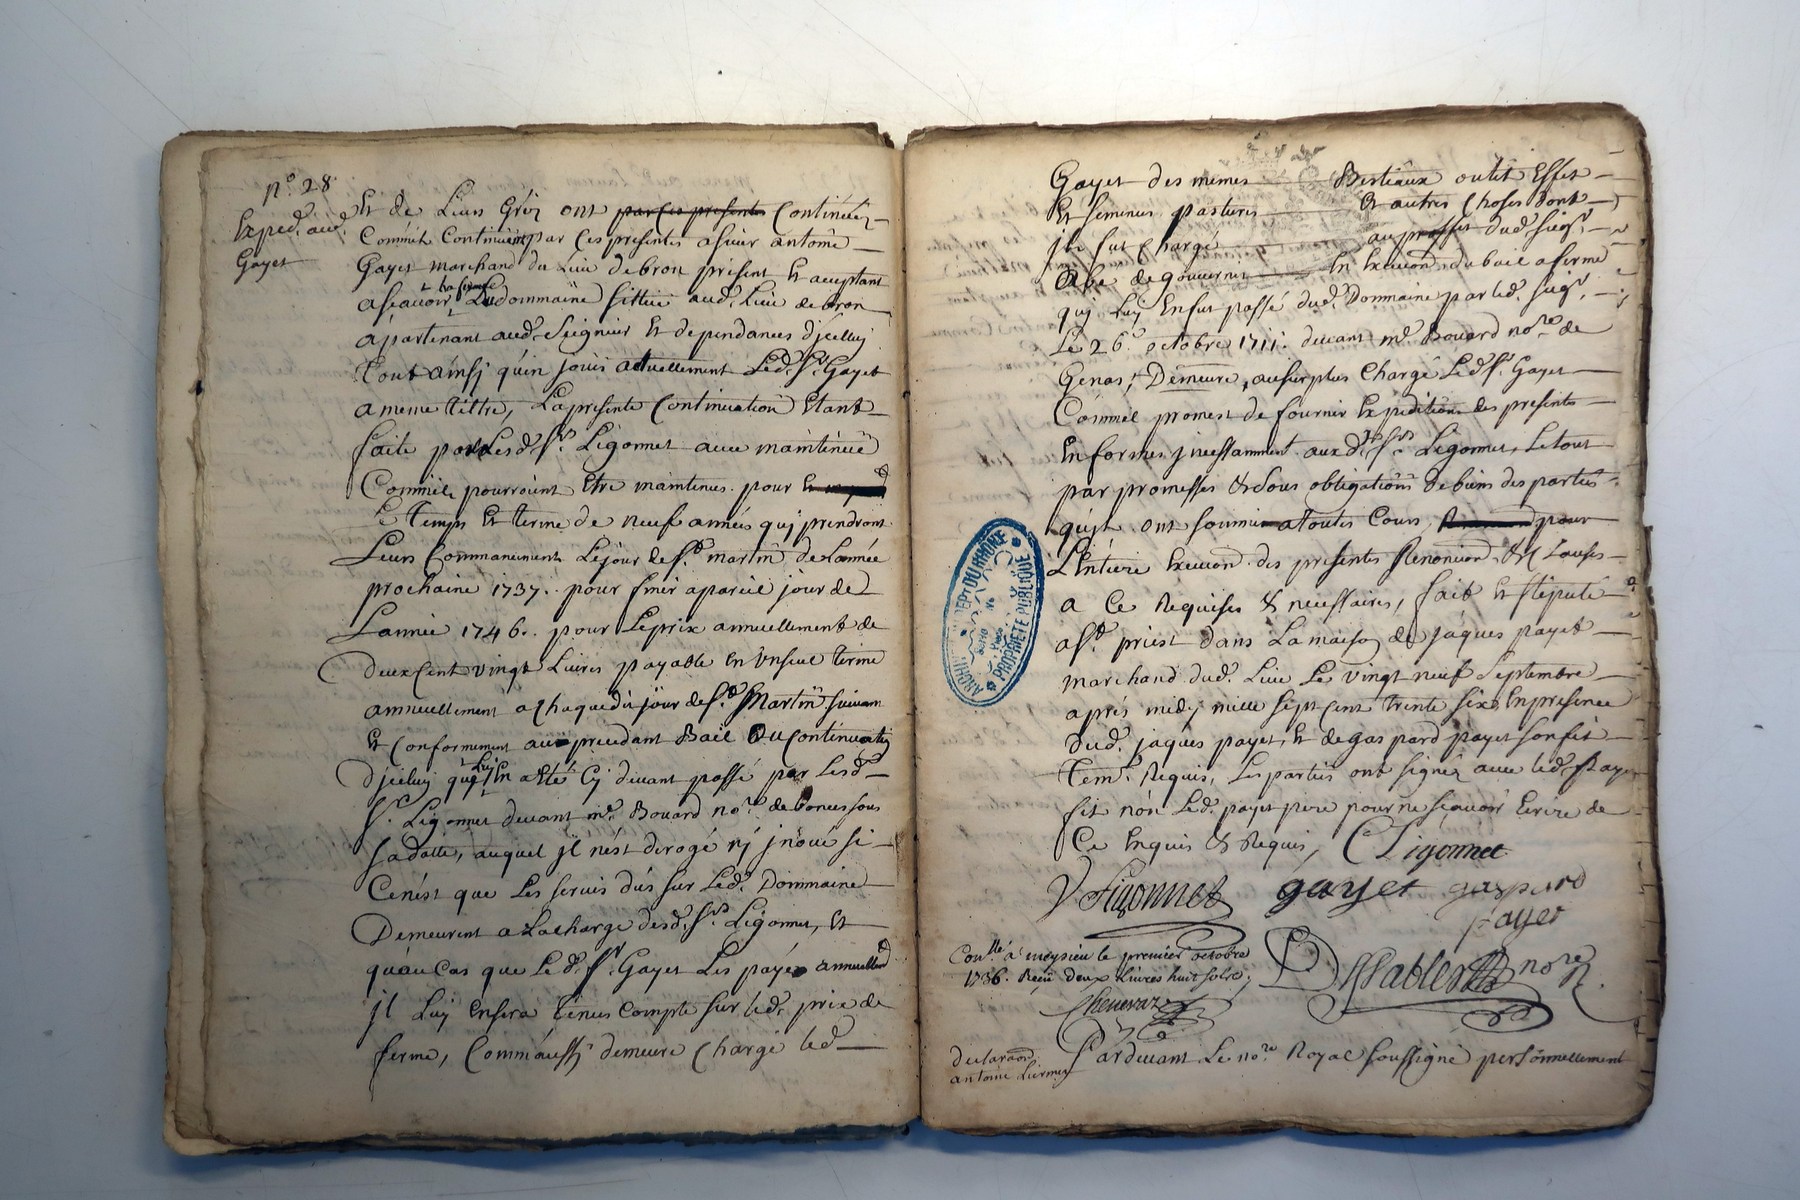 n.° 28.
Exped. aud.
Gayet
Et de Leurs Grez ont par ces presentes Continuéz
Comme Continuent par ces presentes a sieur antoine
Gayet marchand du Lieu de bron present Et acceptant
a scavoir La ferme Dudommaine sittué aud. Lieu de bron
apartenant aud. Seigneur Et dependances d'jcelluy
Tout ainsj qu'en jouis actuellement Led. Sr. Gayet
a meme tiltre, La presente Continuation Etant
faite par Lesd. Srs. Ligonnet avec maintenüe
Comme pourroient Etre maintenus pour
Le temps Et terme de neuf années quj prendront
Leurs Commancement Le jour de St. martin de Lannée
prochaine 1737. pour finir a pareil jour de
L'année 1746. pour Le prix annuellement de
Deux Cent vingt Livres payable En Un seul terme
annuellement a Chaque dit jour de St. Martin suivant
Et Conformement au precedant Bail Ou Continuation
D'jceluy quj Luj En a Eté Cy devant passé par Lesd.
Srs. Ligonnet devant me. Bouard nore. de
sa datte, auquel jl n'est derogé nj jnové si
Ce n'est que Les servis dus sur Led. Dommaine
Demeurent a La charge desd. Srs. Ligonnet, Et
qu'au Cas que Led. Sr. Gayet Les paye annuellemt
jl Luy En sera tenus Compte sur led. prix de
ferme, Comm'aussj demeure Chargé led.
Gayet des memes Bestiaux outil Effet
Et semences pastures Et autres Choses dont
jl fut Chargé au proffit dud. sieur
Abe de gouvernet En Execuon. du bail a ferme
quj Luy En fut passé dud. Dommaine par led. sieur
Le 26e. octobre 1711. devant me. Bouard nore. de
Genas, Demeure, au surplus Chargé Led. Sr. Gayet
Comme promest de fournir Expedition des presentes
En formes jncessamment auxd. Srs. Ligonnet, Le tout
par promesses & sous obligations de biens des parties
qu'jls ont soumis a toutes Cours, pour
L'entiere Execuon. des presentes Renonciaon. & Clauses
a Ce Requises & necessaires, fait Et stipulé
a St. priest dans La maison de jaques payet
marchand dud. Lieu Le vingt neuf Septembre
aprés midy mille sept Cent trente six En presence
Dud. jaques payet, Et de gaspard payet son fils
Tem. Requis, Les parties ont signéz avec led. payet
fils non Led. payet pere pour ne scavoir Ecrire de
Ce Enquis & Requis, C Ligonnet
Ligonnet gayet gaspard
payet
Conllé. a meysieu le premier octobre
1736. Reçu Deux Livres huit sols
Chenevaz
Desables nore.
ARCHIVES DEPT DU RHONE
PROPRIETE PUBLIQUE
declaraon.
antoine
Pardevant Le nore. Royal soussigné personnellement